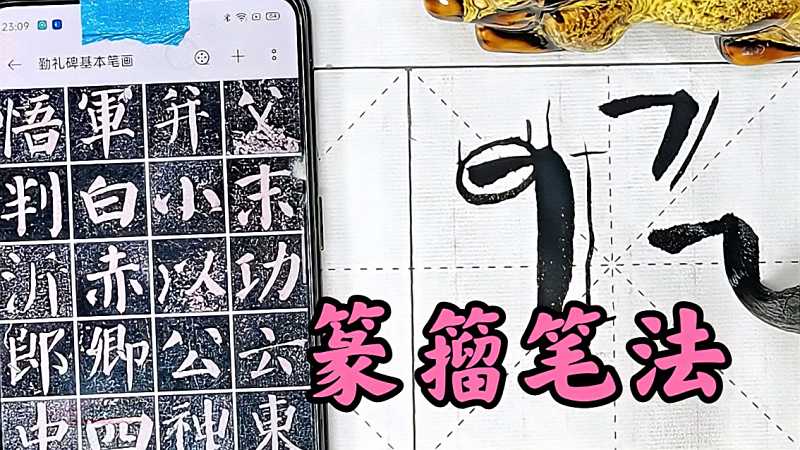 23:09
勤礼碑基本笔画
悟 軍 并 父
判 白 小 末
沂 赤 以 功
郎 卿 公 六
中 四 神 東
篆籀笔法